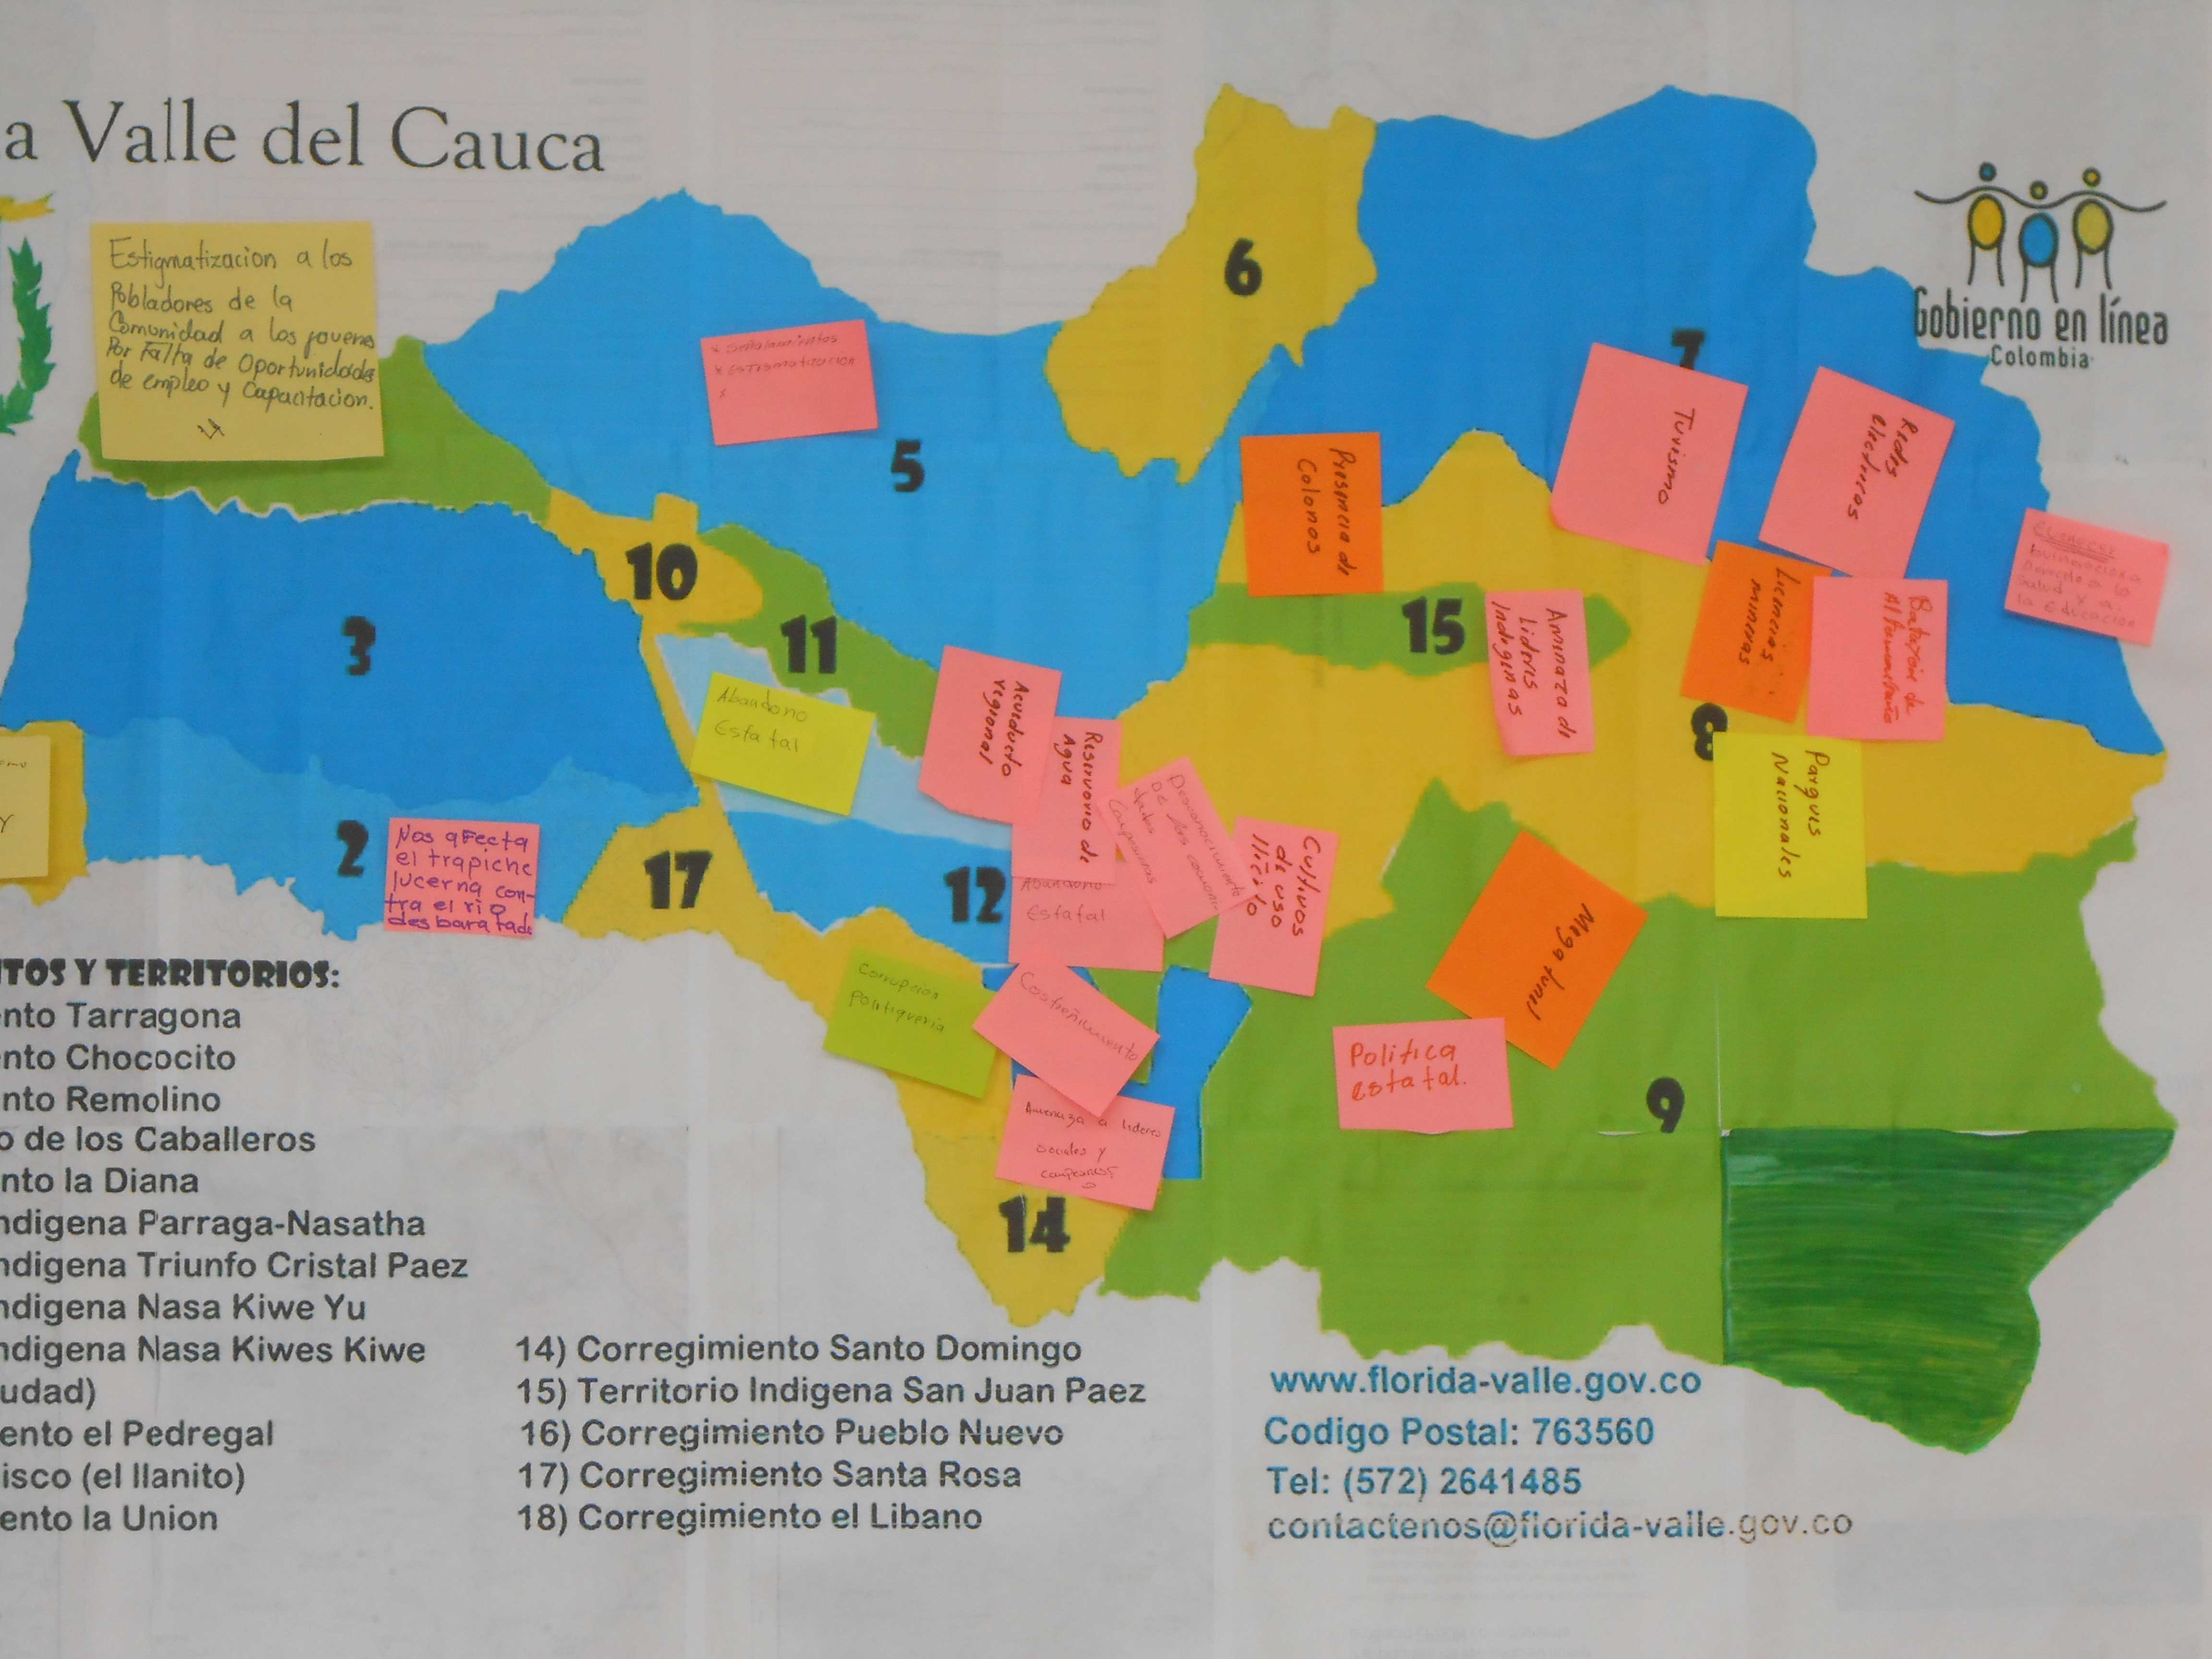 a Valle del Cauca
Estigmatizacion a los
Pobladores de la
Comunidad a los jovenes
Por Falta de Oportunidades
de empleo y Capacitacion.
6
Gobierno en línea
Colombia
7
x Señalamientos
x ESTIGMATIZACION
x
5
Turismo
Redes
electricas
Presencia de
Colonos
10
11
3
15
Aminaza di
Lideris
Indigenas
Licencias
mineras
Batallon de
Alta montaña
Derecho a la
Salud y a
la Educacion
8
Parques
Nacionales
Abandono
Estatal
Acueducto
regional
Reservorio de
Agua
Desconocimiento
De las
Campesinas
Cultivos
de uso
Ilicito
2
Nos aFecta
el trapiche
lucerna con-
tra el rio
desbaratado
17
12
Abandono
Estatal
Mega tunel
Corrupcion
Politiqueria
Costreñimiento
Politica
estatal.
9
Amenaza a lideres
sociales y
campesinos
14
TOS Y TERRITORIOS:
nto Tarragona
nto Chococito
nto Remolino
o de los Caballeros
nto la Diana
ndigena Parraga-Nasatha
ndigena Triunfo Cristal Paez
ndigena Nasa Kiwe Yu
ndigena Nasa Kiwes Kiwe
udad)
ento el Pedregal
isco (el llanito)
ento la Union
14) Corregimiento Santo Domingo
15) Territorio Indigena San Juan Paez
16) Corregimiento Pueblo Nuevo
17) Corregimiento Santa Rosa
18) Corregimiento el Libano
www.florida-valle.gov.co
Codigo Postal: 763560
Tel: (572) 2641485
contactenos@florida-valle.gov.co